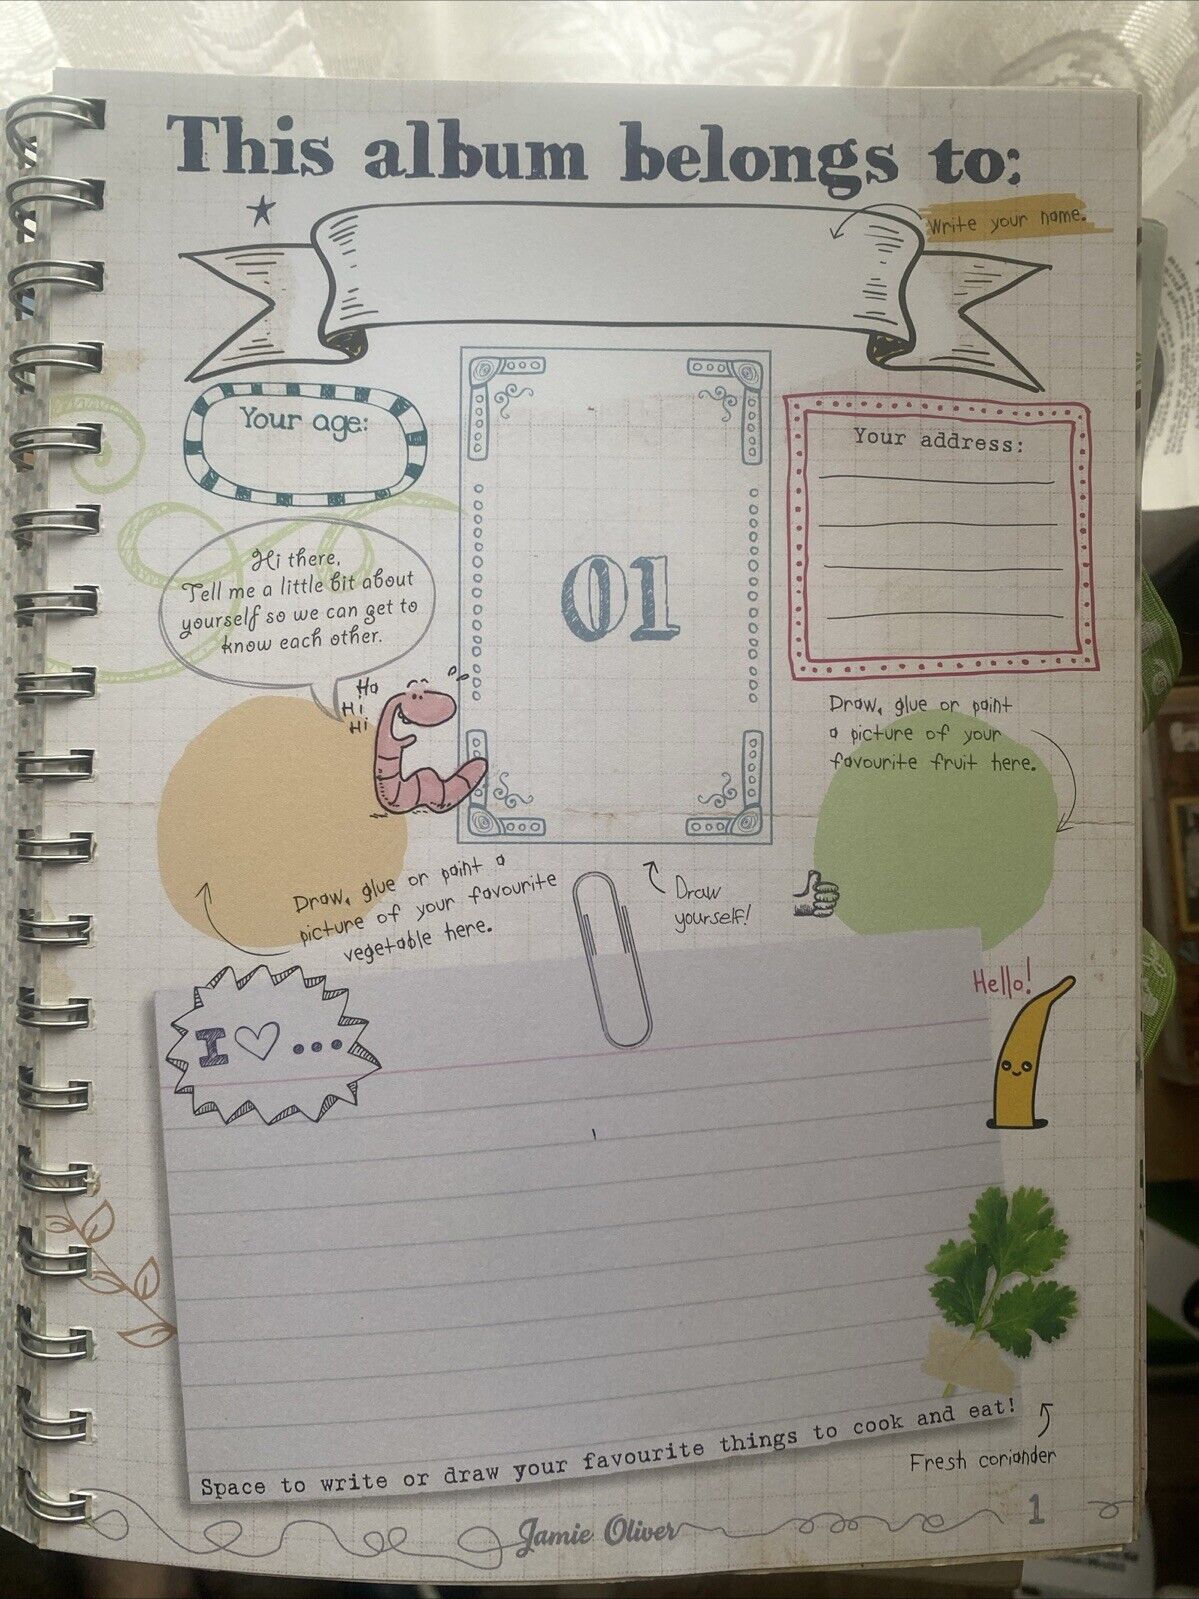 This album belongs to:
Write your name.
Your age:
Your address:
Hi there,
Tell me a little bit about
yourself so we can get to
know each other.
Ha
Hi
Hi
01
Draw, glue or paint
a picture of your
favourite fruit here.
Draw, glue or paint a
picture of your favourite
vegetable here.
Draw
yourself!
I ♡ ...
Hello!
Space to write or draw your favourite things to cook and eat!
Fresh coriander
Jamie Oliver
1